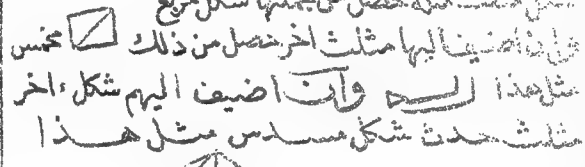 يحصل من جملتها شكل مربع
فان اضيف اليها مثلث اخر حصل من ذلك مخمس
مثل هذا وان اضيف اليهم شكل اخر
مثلث حدث شكل مسدس مثل هذا